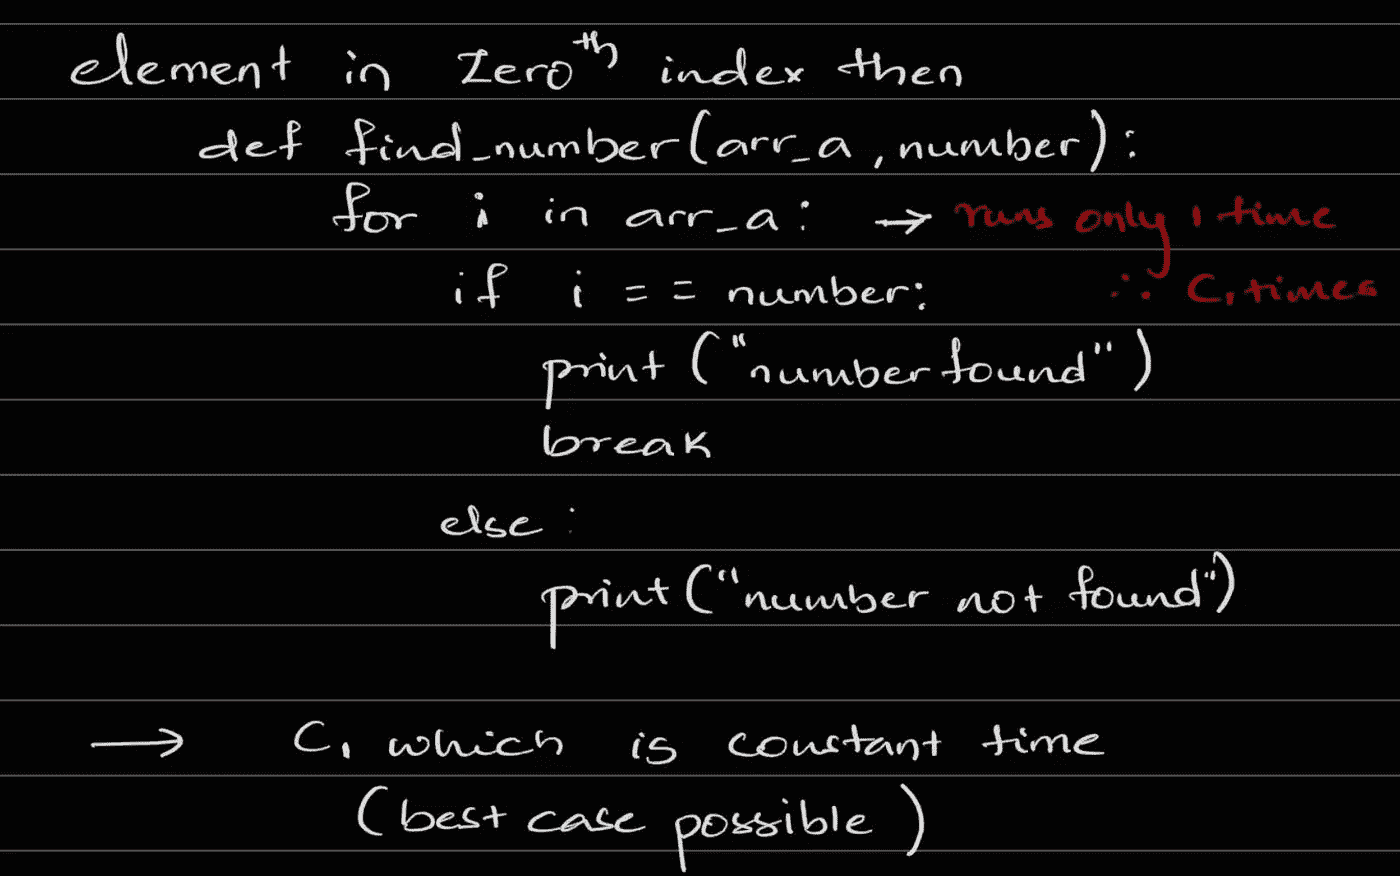 element in Zeroth index then
def find_number(arr_a, number):
for i in arr_a: → runs only 1 time
if i == number: ∴ C1 times
print ("number found")
break
else:
print ("number not found")
→ C1 which is constant time
(best case possible)